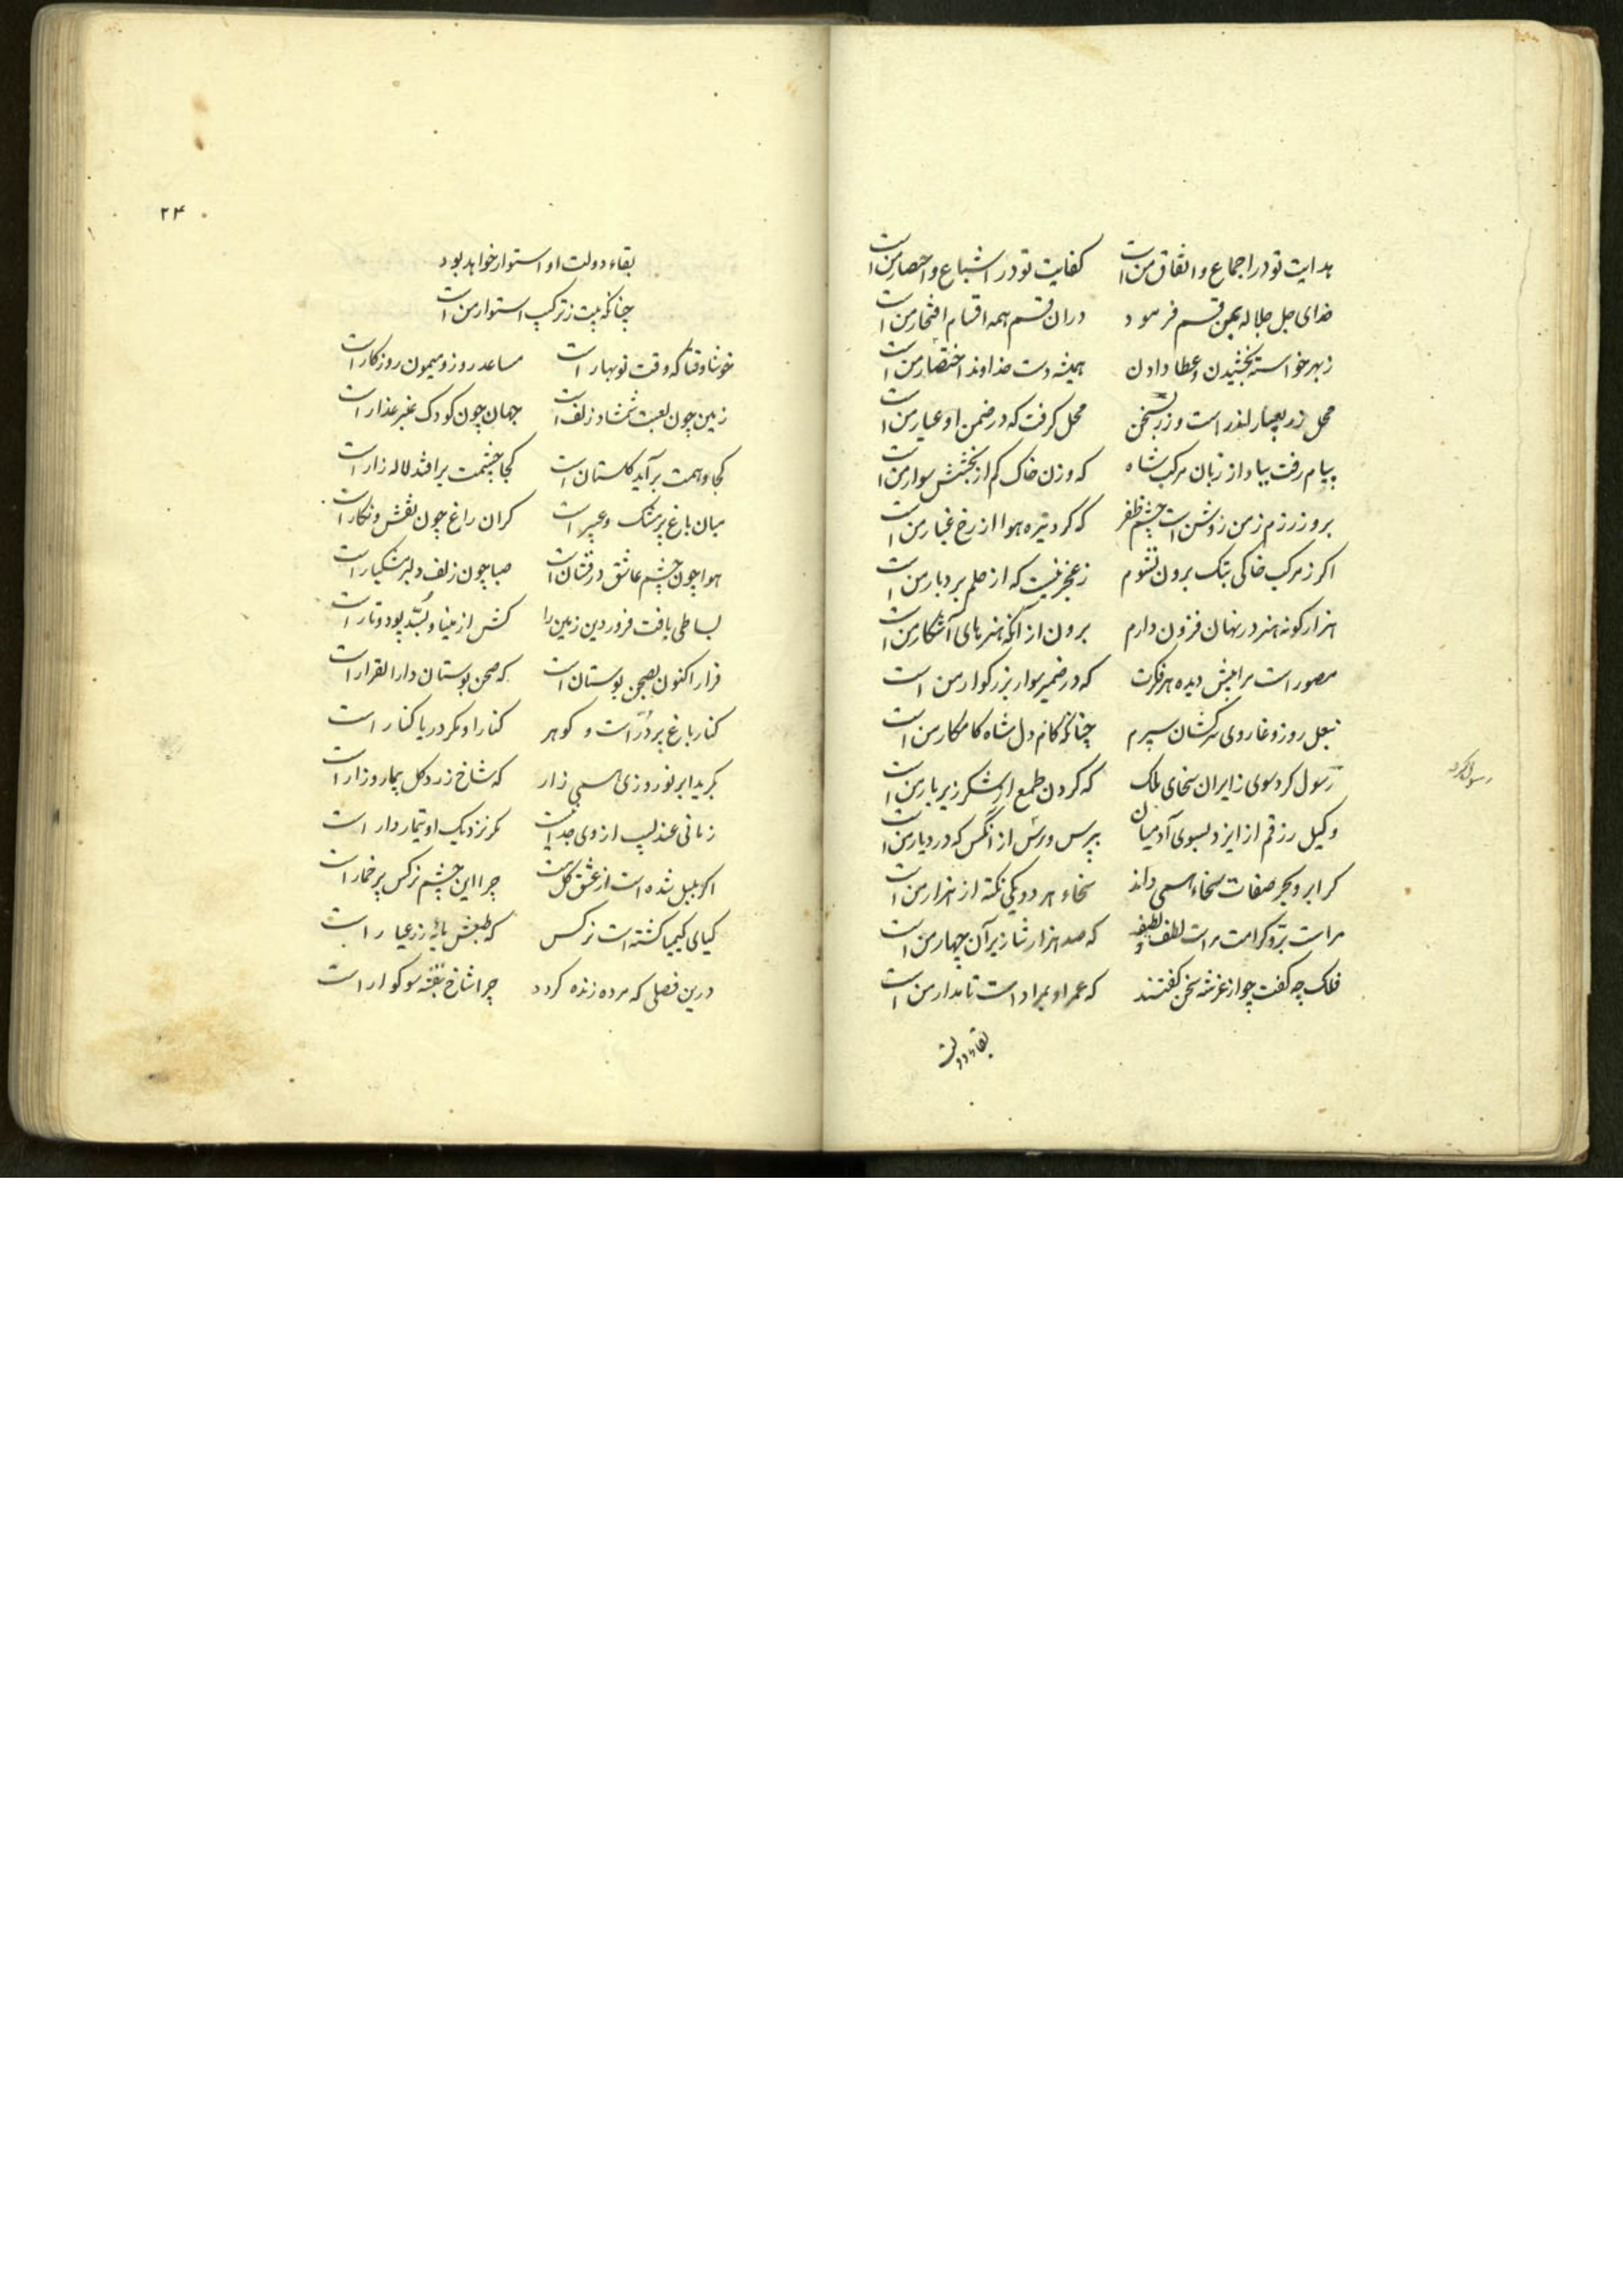 هدایت تو در اجماع و اتفاق من است کفایت تو در اشباع و احصار من است
خدای جل جلاله بمن قسم فرمود دران قسم همه اقسام افتخار من است
زبهر خواسته بخشیدن و عطا دادن همیشه دست خداوند اختصار من است
محل زر بعیار اندر است و زر بسخن محل گرفت که در ضمن او عیار من است
پیام رفت بباد از زبان مرکب شاه که وزن خاک کم از بخشش سوار من است
بروز رزم ز من روشن است چشم ظفر که گرد تیره هوا از رخ غبار من است
اگر ز مرکب خاکی بتک برون نشوم ز عجز نیست که از حلم بردبار من است
هزار گونه هنر در نهان فزون دارم برون از آنکه هنرهای آشکار من است
مصور است مرا پیش دیده هر فکرت که در ضمیر سوار بزرگوار من است
بنعل روز وغا روی سرکشان سپرم چنانکه کام دل شاه کامکار من است
رسول کرد سوی زایران سخای ملک که گردن طمع از شکر زیر بار من است
وکیل رزقم از ایزد بسوی آدمیان بپرس ورش از انکس که در دیار من است
کر ابر و بحر صفات سخاء همی داند سخاء هر دو یکی نکته از هزار من است
مراست برّ و کرامت مراست لطف و لطیفه که صد هزار شا زیر آن چهار من است
فلک چه گفت چو از عزشه سخن گفتند که عمر او بمراد است تا مدار من است
بقاء دولت
رسول کرد
۲۴
بقاء دولت او استوار خواهد بود
چنانکه بیت ز ترکیب استوار من است
خوشا وقتا که وقت نوبهار است مساعد روز و میمون روزگار است
زمین چون لعبت شمشاد زلف است جهان چون کودک عنبر عذار است
کجا وهمت برآید گلستان است کجا چشمت برافتد لاله زار است
میان باغ پر مشک و عبیر است کران راغ چون نقش و نگار است
هوا چون چشم عاشق درفشان است صبا چون زلف دلبر مشکبار است
بساطی بافت فروردین زمین را کش از مینا و بُسّد پود و تار است
قرار اکنون بصحن بوستان است که صحن بوستان دار القرار است
کنار باغ پر دُرّ است و گوهر کنار او مگر دریا کنار است
بگرید ابر نوروزی همی زار که شاخ زرد گل بیمار و زار است
زمانی عندلیب از وی جدا نیست مگر نزدیک او تیماردار است
اگر بلبل شده است از عشق گل مست چرا این چشم نرگس پر خمار است
گیای کیمیا گشته است نرگس که طبعش مایه زر عیار است
درین فصلی که مرده زنده گردد چرا شاخ بنفشه سوکوار است